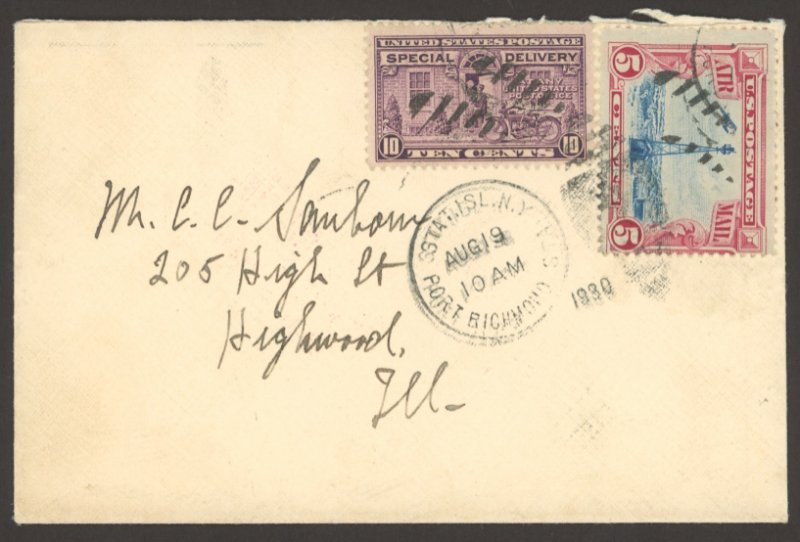 UNITED STATES POSTAGE
SPECIAL DELIVERY
AT ANY
UNITED STATES
POST OFFICE
10 TEN CENTS 10
U.S. POSTAGE
AIR MAIL
5 CENTS 5
STAT. ISL. N.Y.
AUG 19
10 AM
PORT RICHMOND STA.
1930
Mr. C. C. Sanborn
205 High St
Highwood,
Ill-